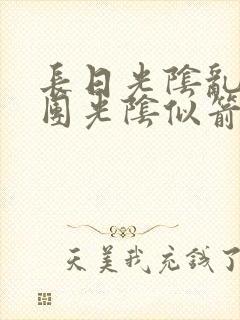 長日光陰亂
團光陰似箭
天美我充錢了